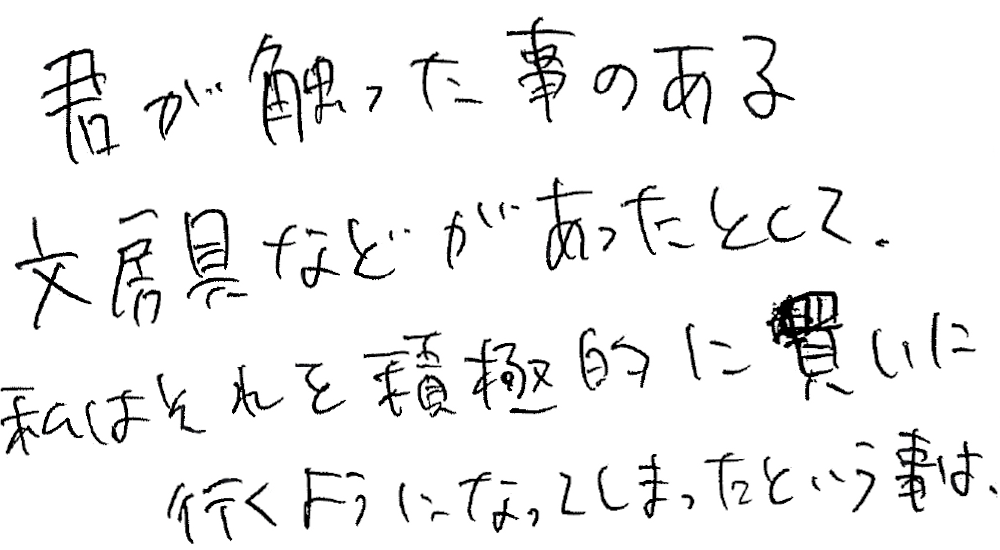 君が触った事のある
文房具などがあったとして、
私はそれを積極的に買いに
行くようになってしまったという事は、